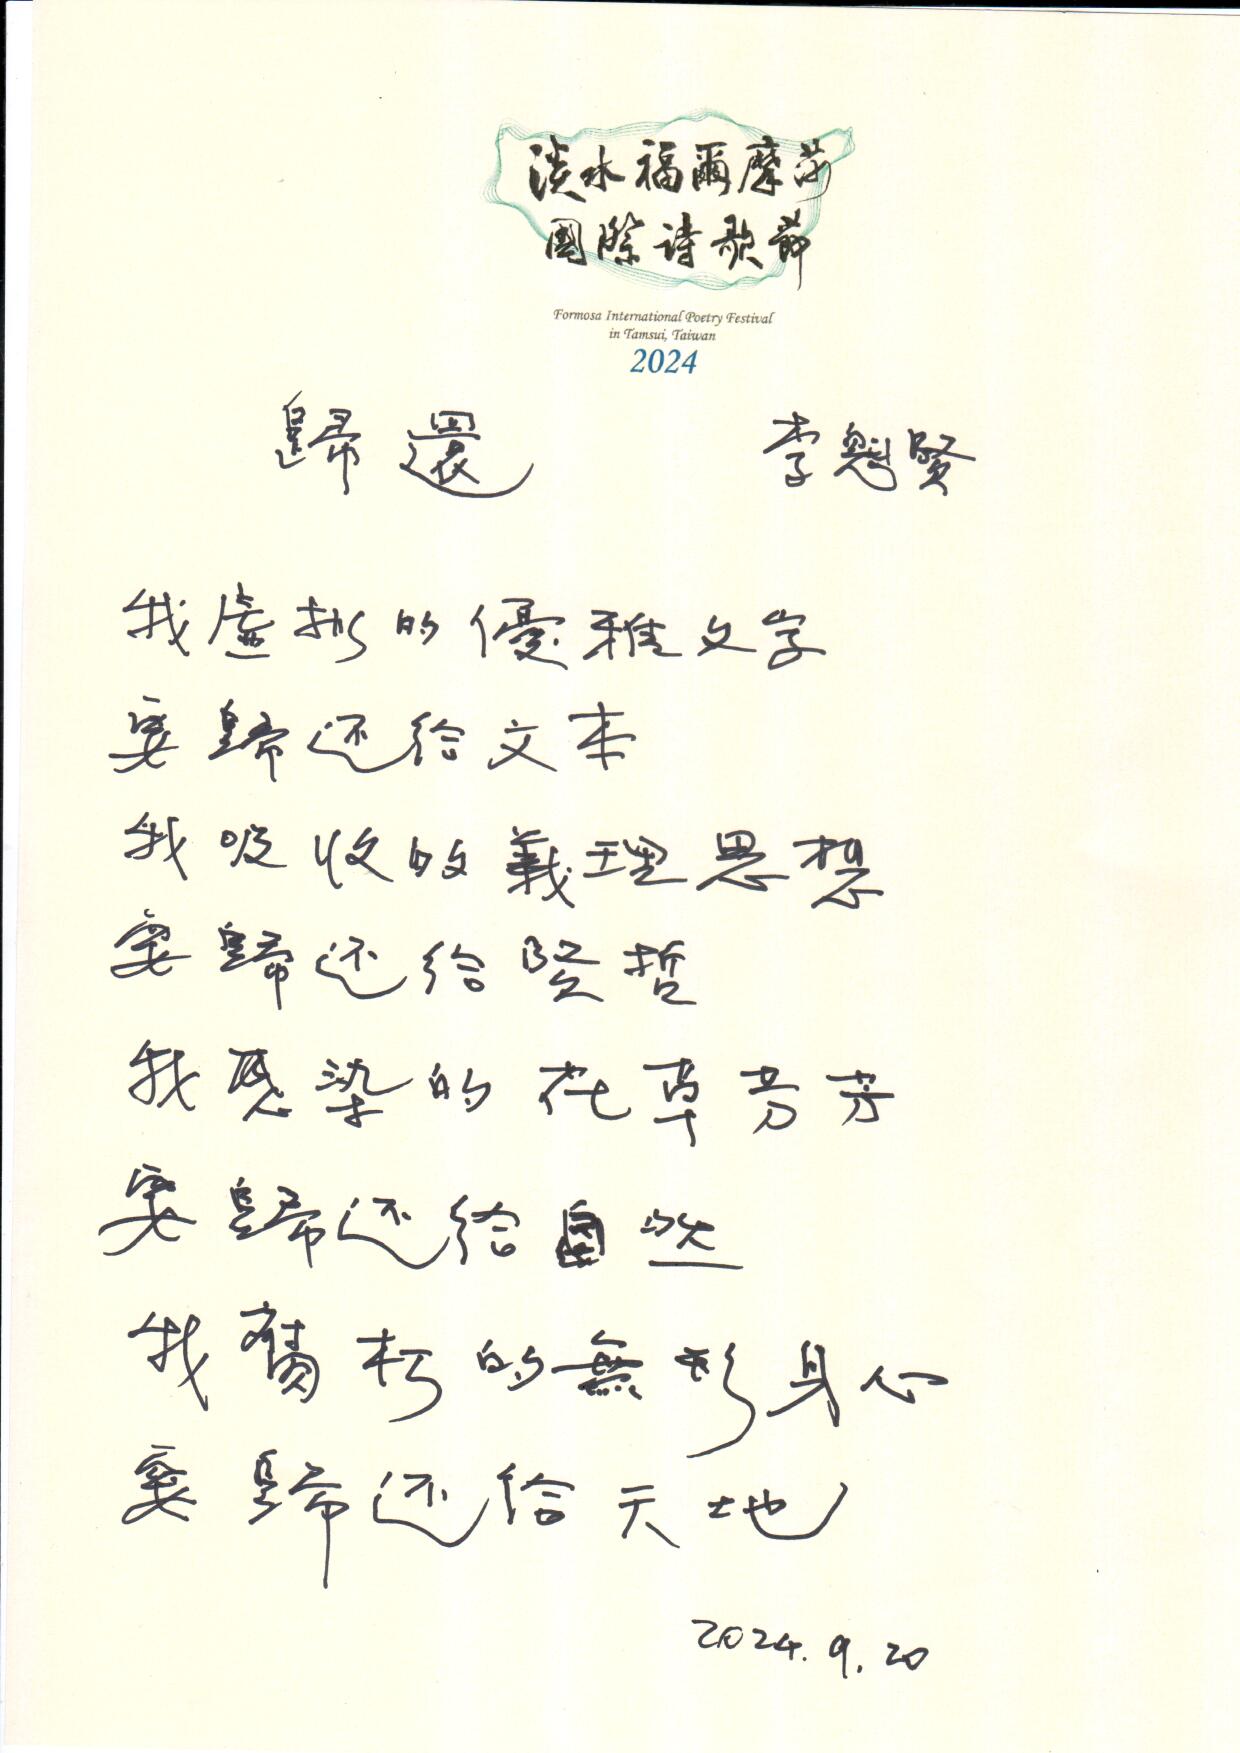 淡水福爾摩莎
國際詩歌節
Formosa International Poetry Festival
in Tamsui, Taiwan
2024
歸還 李魁賢
我虛拟的優雅文字
要歸还給文本
我吸收的義理思想
要歸还給賢哲
我感染的花草芬芳
要歸还給自然
我腐朽的無形身心
要歸还給天地
2024.9.20